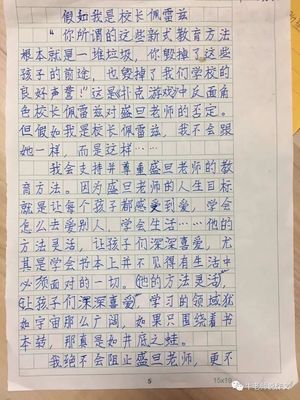 假如我是校长佩雷兹
“你所谓的这些新式教育方法
根本就是一堆垃圾，你毁掉了这些
孩子的前途，也毁掉了我们学校的
良好声誉！”这是《扑克游戏》中反面角
色校长佩雷兹对盛旦老师的否定。
但假如我是校长佩雷兹，我不会跟
她一样，而是这样……
我会支持并尊重盛旦老师的教
育方法。因为盛旦老师的人生目标
就是让每个孩子都感受到爱，学会
怎么去爱别人，学会生活……他的
方法灵活，让孩子们深深喜爱，尤
其是学会书本上并不见得有生活中
必须面对的一切。他的方法灵活，
让孩子们深深喜爱，学习的领域犹
如宇宙那么广阔，如果只围绕着书
本转，那真是如井底之蛙。
我绝不会阻止盛旦老师，更不
5
牛老师说作文